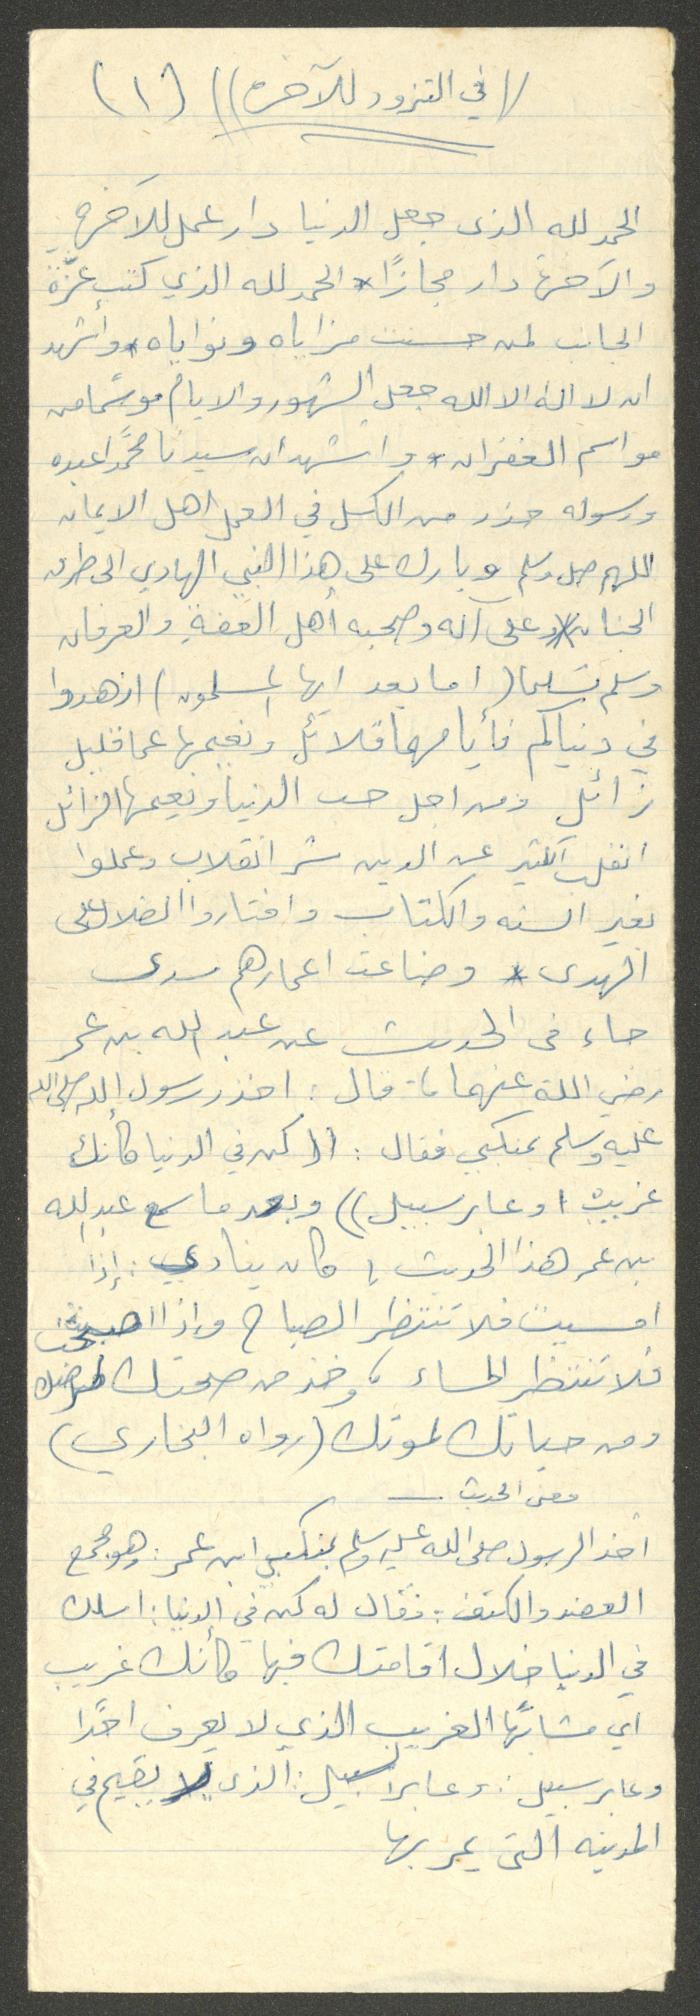 ((في التزود للآخره)) (١)
الحمد لله الذى جعل الدنيا دار عمل للآخره
والآخرة دار مجازاً * الحمد لله الذي كتب عزّة
الجانب لمن حسنت مزاياه ونواياه * وأشهد
ان لا اله الا الله جعل الشهور والايام موسما من
مواسم الغفران * واشهد ان سيدنا محمَّدا عبده
ورسوله حذر من الكسل في العمل اهل الايمان
اللهم صل وسلم وبارك على هذا النبي الهادي الى طرق
الجنان * وعلى آله وصحبه أهل العفةِ والعرفان
وسلم تسليما (اما بعد ايها المسلمون) ازهدوا
في دنياكم فأيامها قلائل ونعيمها عما قليل
زائل ومن اجل حب الدنيا ونعيمها الزائل
انقلب الكثير عن الدين شر انقلاب وعملوا
بغير السنه والكتاب واختاروا الضلال على
الهدى * وضاعت اعمارهم سدى
جاء فى الحديث عن عبد الله بن عمر
رضي الله عنهما قال : اخذ رسول الله صلى الله
عليه وسلم بمنكبي فقال : ((كن في الدنيا كأنك
غريب او عابر سبيل)) وبعد ما سمع عبد الله
بن عمر هذا الحديث كان ينادي : إذا
امسيت فلا تنتظر الصباح واذا اصبحت
فلا تنتظر المساء ، وخذ من صحتك لمرضك
ومن حياتك لموتك (رواه البخاري)
معنى الحديث —
اخذ الرسول صلى الله عليه وسلم بمنكبي ابن عمر : وهو مجمع
العضد والكتف : فقال له كن في الدنيا : اسلك
في الدنيا خلال اقامتك فيها كأنك غريب
اي مشابهًا الغريب الذي لا يعرف احدًا
وعابر سبيل : وعابر السبيل : الذى لا يقيم في
المدينه التى يمر بها